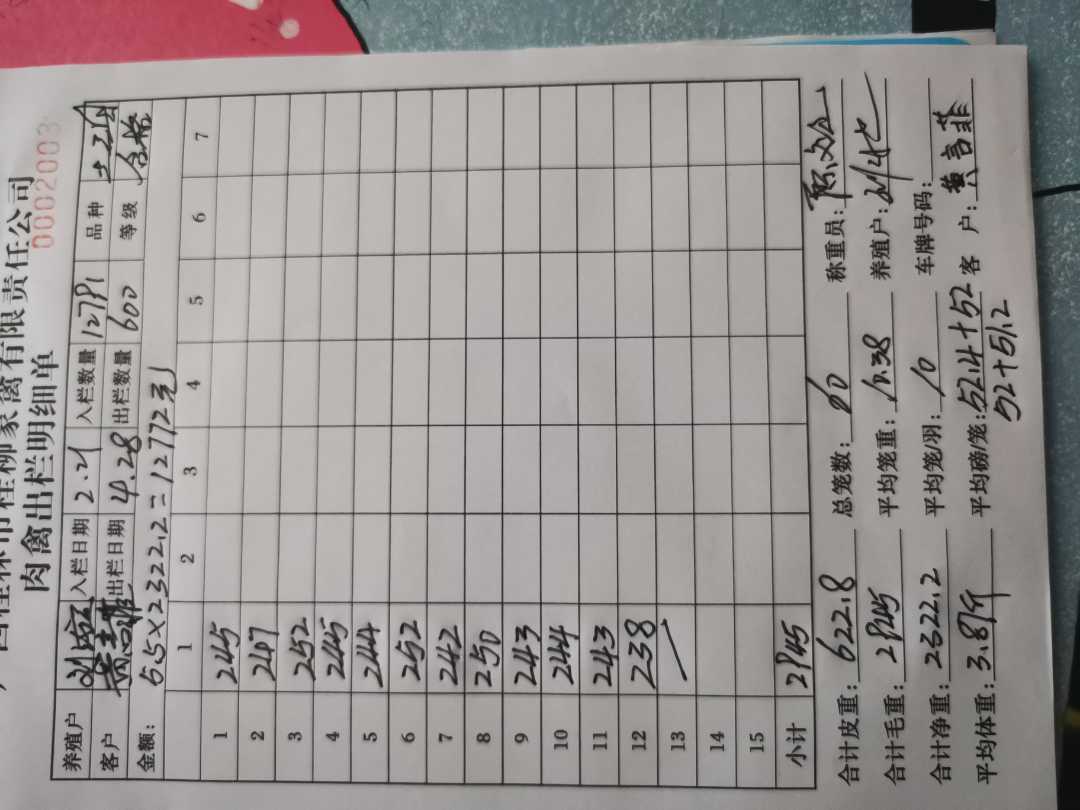 桂柳家禽有限责任公司
肉禽出栏明细单
0002003
养殖户 入栏日期 2.21 入栏数量 12791 品种
客户 黄言菲 出栏日期 4.28 出栏数量 600 等级 合格
金额: 5.5×2322.2=12772元
1 2 3 4 5 6 7
1 245
2 247
3 252
4 245
5 244
6 252
7 242
8 250
9 243
10 244
11 243
12 238
13
14
15
小计 2945
合计皮重: 622.8 总笼数: 60 称重员:
合计毛重: 2945 平均笼重: 10.38 养殖户:
合计净重: 2322.2 平均笼/羽: 10 车牌号码:
平均体重: 3.87斤 平均磅/笼: 52.4+52 客户: 黄言菲
52+51.2